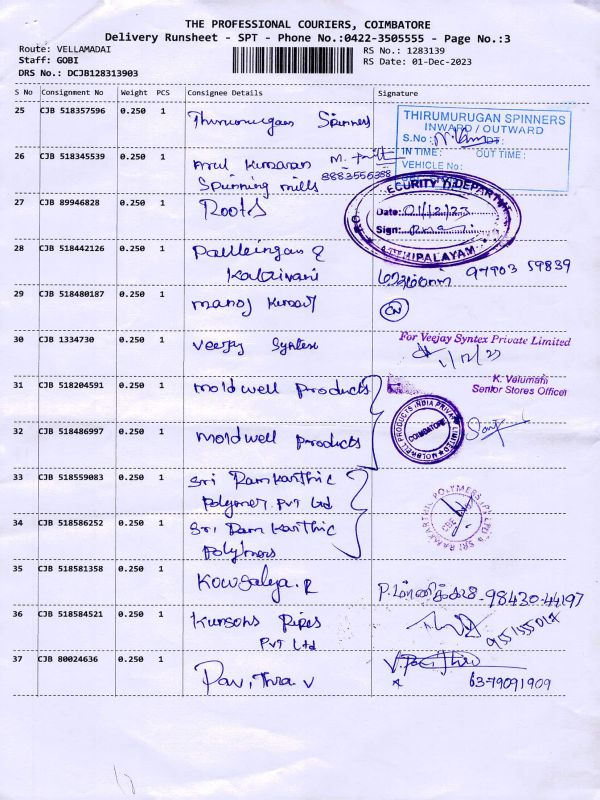 THE PROFESSIONAL COURIERS, COIMBATORE
Delivery Runsheet - SPT - Phone No.:0422-3505555 - Page No.:3
Route: VELLAMADAI
RS No.: 1283139
Staff: GOBI
RS Date: 01-Dec-2023
DRS No.: DCJB128313903
S No Consignment No Weight PCS Consignee Details Signature
25 CJB 518357596 0.250 1 Thirumurugan Spinners
THIRUMURUGAN SPINNERS
INWARD / OUTWARD
S.No :
IN TIME : OUT TIME :
VEHICLE No:
26 CJB 518345539 0.250 1 Arul Kumaran
Spinning mills
8883556388
27 CJB 89946828 0.250 1 Roots
Date: 01/12/23
Sign:
28 CJB 518442126 0.250 1
Kalaivani
97903 59839
29 CJB 518480187 0.250 1 Manoj Kumar
CN
30 CJB 1334730 0.250 1 Veejay Syntex
For Veejay Syntex Private Limited
1/12/23
K. Velumani
Senior Stores Officer
31 CJB 518204591 0.250 1 Moldwell Products
32 CJB 518486997 0.250 1 Moldwell Products
MOLDWELL PRODUCTS INDIA PRIVATE LIMITED
COIMBATORE
33 CJB 518559083 0.250 1 Sri Ramkarthic
Polymer Pvt Ltd
34 CJB 518586252 0.250 1 Sri Ram Karthic
Polymers
35 CJB 518581358 0.250 1 Kowsalya. R
98430-44197
36 CJB 518584521 0.250 1 Kunsons Pipes
Pvt Ltd
37 CJB 80024636 0.250 1 Pavithra V
63-79091909